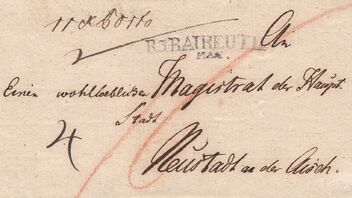 R3.BAIREUTH
An
Einen wohlloeblichen Magistrat der Haupt
Stadt
4
Neustadt an der Aisch.